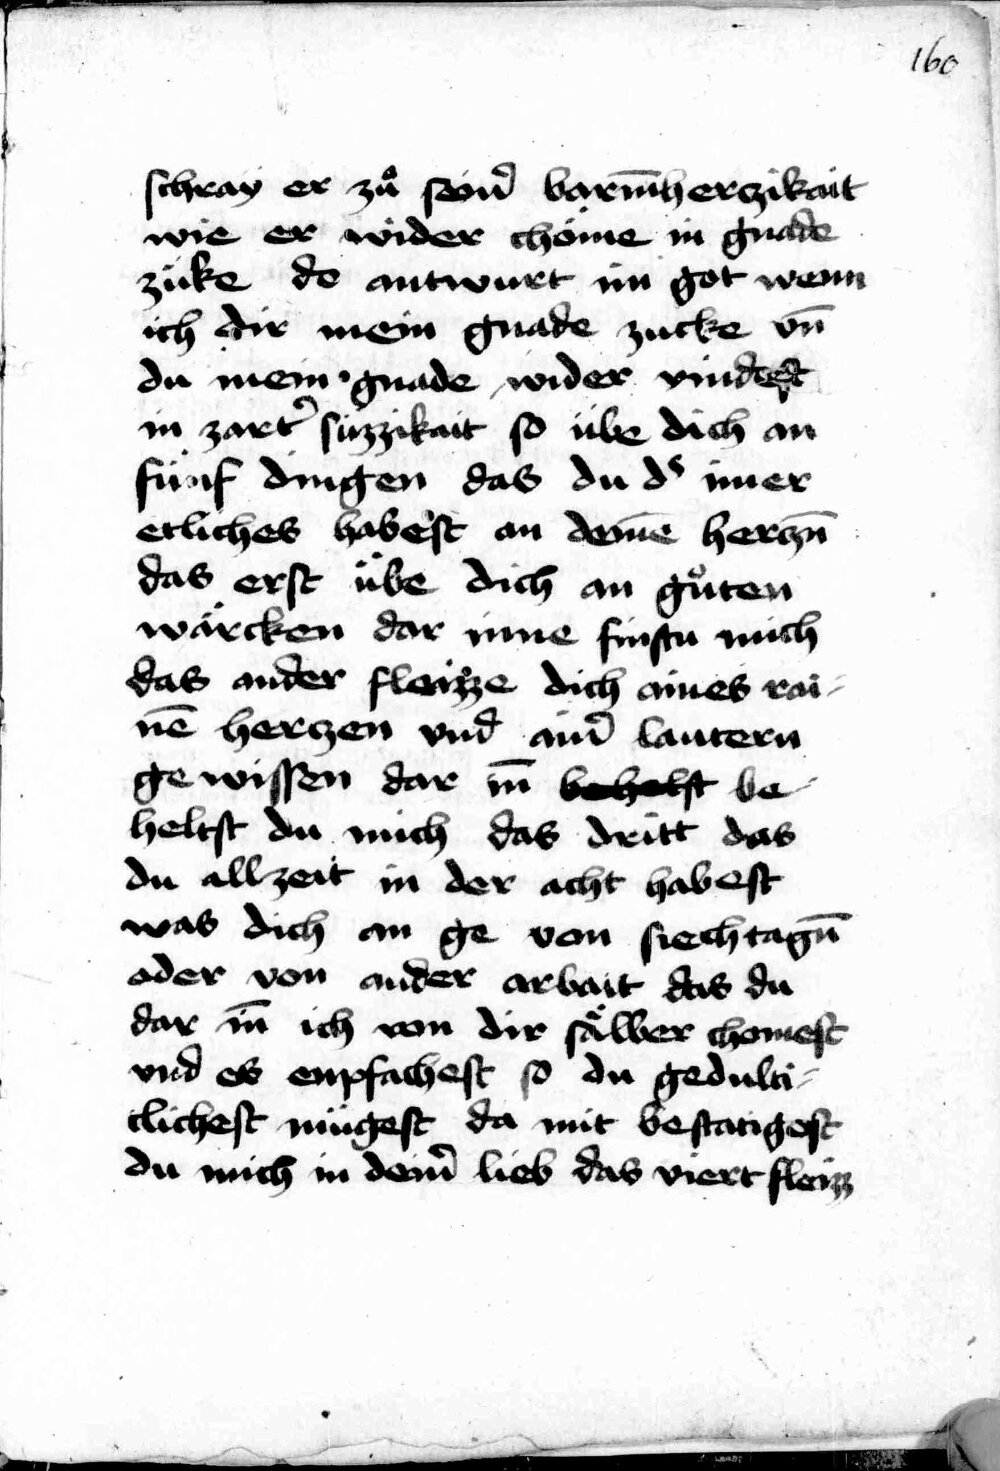 160
schray er zů sein̄ barm̄herczikait
wie er wider chöme in gnade
züke do antwurt im got wenn
ich dir mein gnade zucke vn̄
du mein gnade wider vindest
in zart̓ süzzikait so übe dich an
fünf dingen das du dˢ imer
etliches habest an deinē herczn̄
das erst übe dich an gůten
wärcken dar inne finstu mich
das ander fleizze dich aines rai-
nē herczen vnd ain̓ lautern
gewissen dar in̄ behelst be-
heltst du mich das dritt das
du allzeit in der acht habest
was dich an ge von siechtagn̄
oder von ander arbait das du
dar in̄ ich von dir sälber chomest
vnd es enpfachest so du gedulti-
tlichest mügest da mit bestatigest
du mich in dein̓ lieb das viert fleizz